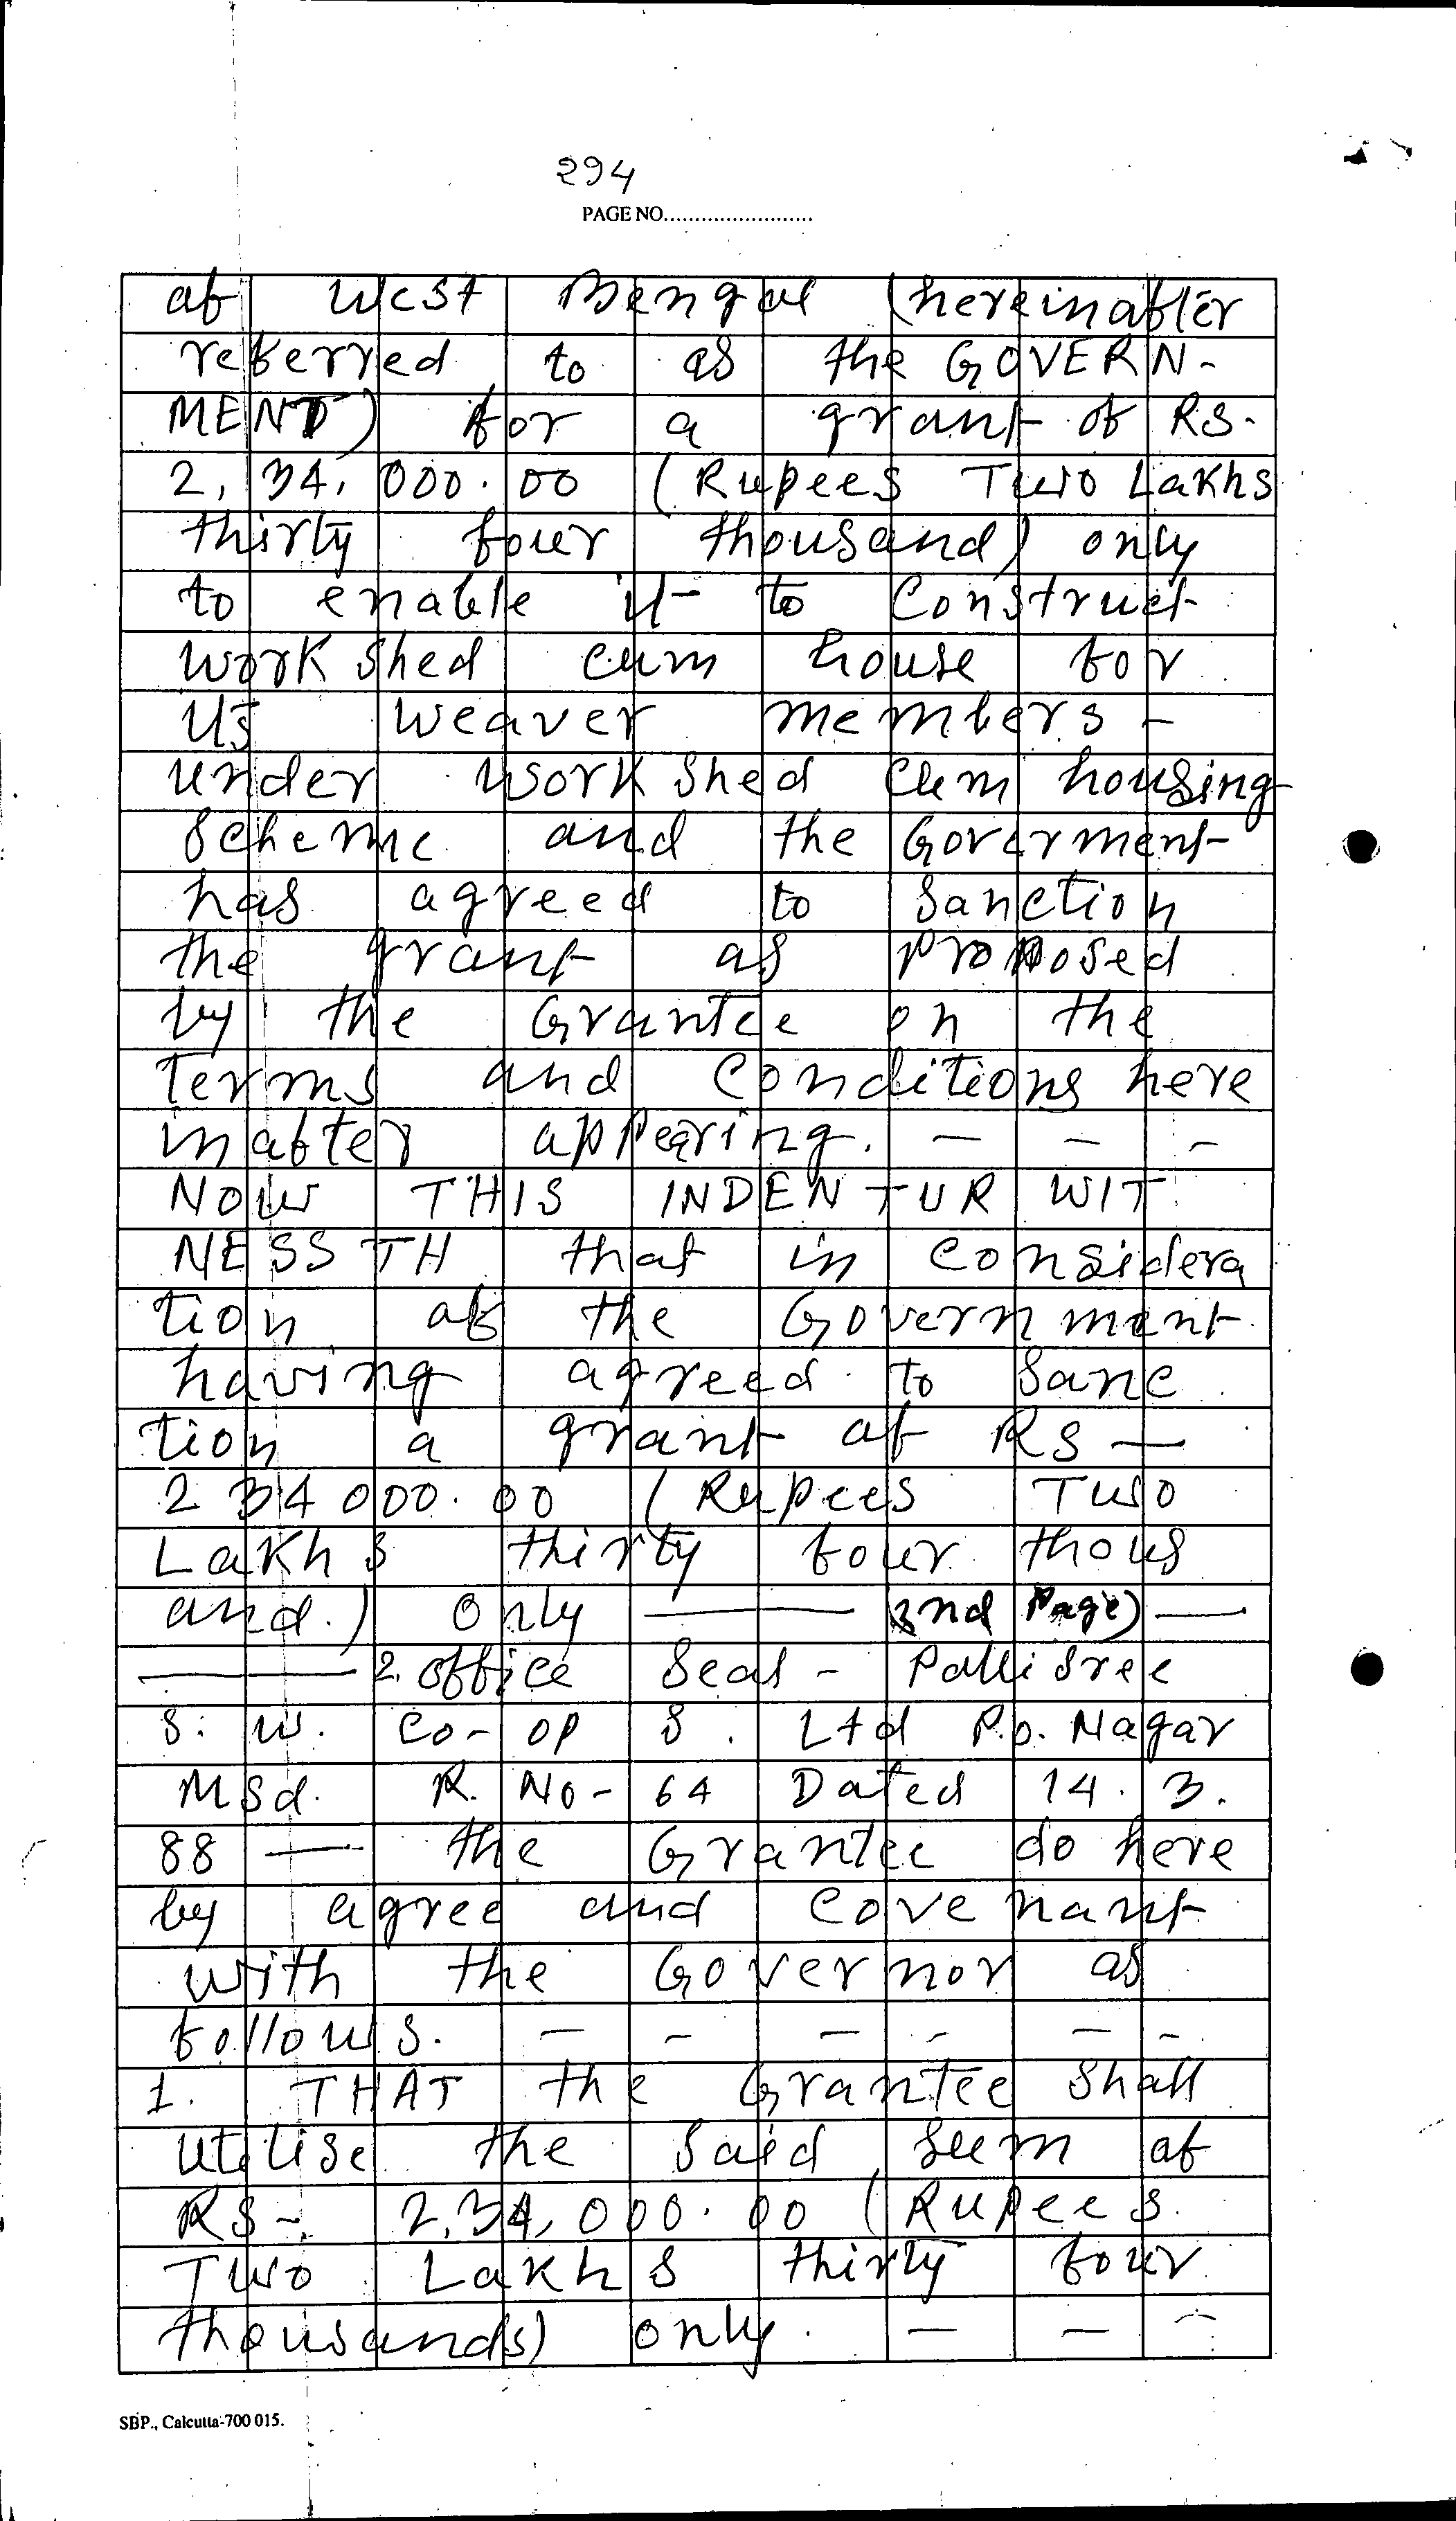 294
PAGE NO........................
of West Bengal (hereinafter
referred to as the GOVERN-
MENT) for a grant of RS.
2,34,000.00 (Rupees Two Lakhs
thirty four thousand) only
to enable it to Construct
work shed cum house for
its weaver members -
under work shed cum housing
Scheme and the Goverment
has agreed to Sanction
the grant as proposed
by the Grantee on the
terms and Conditions here
inafter appearing. — — —
NOW THIS INDENTUR WIT
NESSTH that in Considera
tion of the Government
having agreed to Sanc
tion a grant of RS —
234000.00 (Rupees Two
Lakhs thirty four thous
and.) Only ——— 2nd Page) —
——— 2. office Seal - Pallisree
S. W. Co-op S. Ltd P.o. Nagar
Msd. R. No- 64 Dated 14.3.
88 — the Grantee do here
by agree and Covenant
with the Governor as
follows. — — — — — —
1. THAT the Grantee Shall
utilise the Said Sum of
RS- 2,34,000.00 (Rupees
Two Lakhs thirty four
thousands) only. — — —
SBP., Calcutta-700 015.